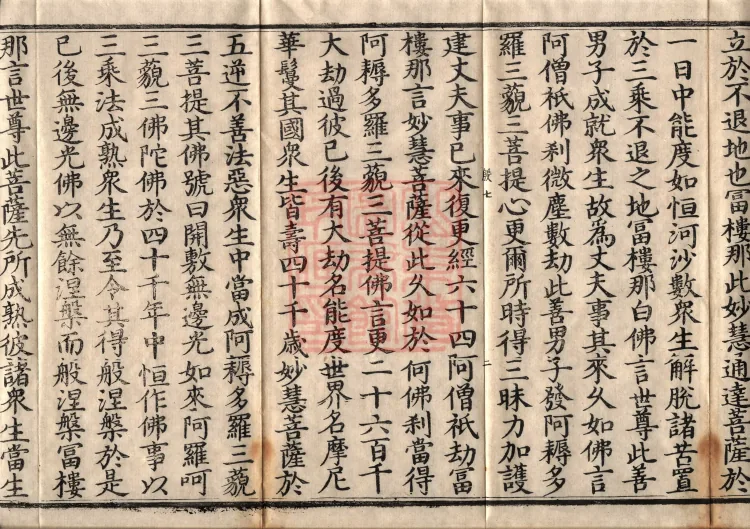 立於不退地也冨樓那此妙慧通達菩薩於
一日中能度如恒河沙數衆生解脫諸苦置
於三乘不退之地冨樓那白佛言世尊此善
男子成就衆生故為丈夫事其來久如佛言
阿僧祇佛剎微塵數劫此善男子發阿耨多
羅三藐三菩提心更爾所時得三昧力加護
建丈夫事已來復更經六十四阿僧祇劫冨
樓那言妙慧菩薩從此久如於何佛剎當得
阿耨多羅三藐三菩提佛言更二十六百千
大劫過彼已後有大劫名能度世界名摩尼
華鬘其國衆生皆壽四十千歲妙慧菩薩於
五逆不善法惡衆生中當成阿耨多羅三藐
三菩提其佛號曰開敷無邊光如來阿羅呵
三藐三佛陀佛於四十千年中恒作佛事以
三乘法成熟衆生乃至令其得般涅槃於是
已後無邊光佛以無餘涅槃而般涅槃冨樓
那言世尊此菩薩先所成熟彼諸衆生當生
二